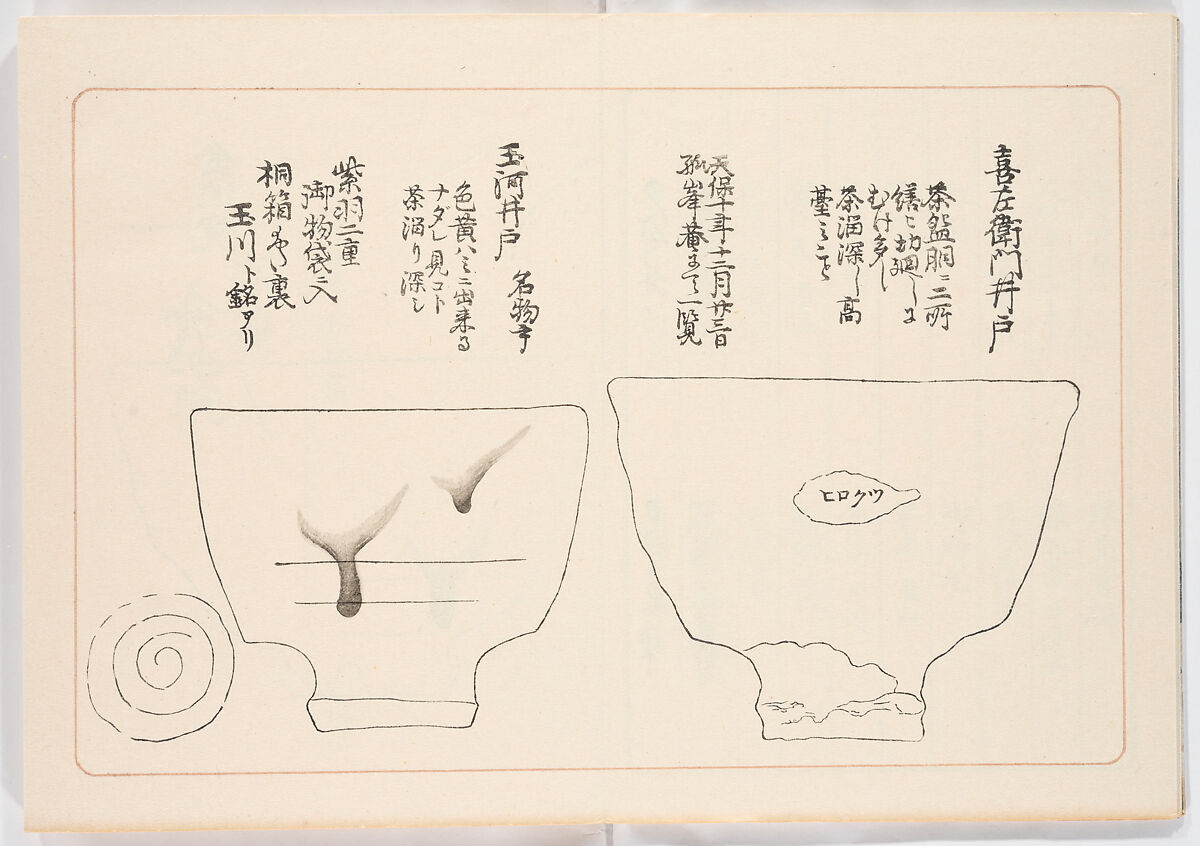 喜左衛門井戸
茶盌胴ニ二所
繕ヒ
茶溜深し高
臺
ヒロクツ
天保十年十二月廿三日
孤峯菴ニて一覧
玉河井戸 名物手
色黄ハミニ出来る
ナダレ見コト
茶溜り深シ
紫羽二重
御物袋ニ入
桐箱 裏
玉川ト銘アリ